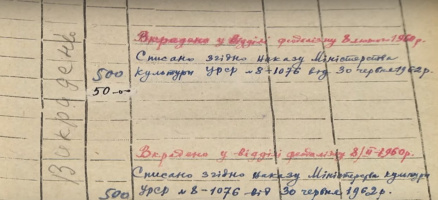 Викрадені
Вкрадено у відділі 1960р.
Списано згідно наказу Міністерства
500 культури УРСР №8-1076 від 30 червня 1962р.
50-00
Вкрадено у відділі 8/ІІ-1960р.
Списано згідно наказу Міністерства культури
500 УРСР №8-1076 від 30 червня 1962р.